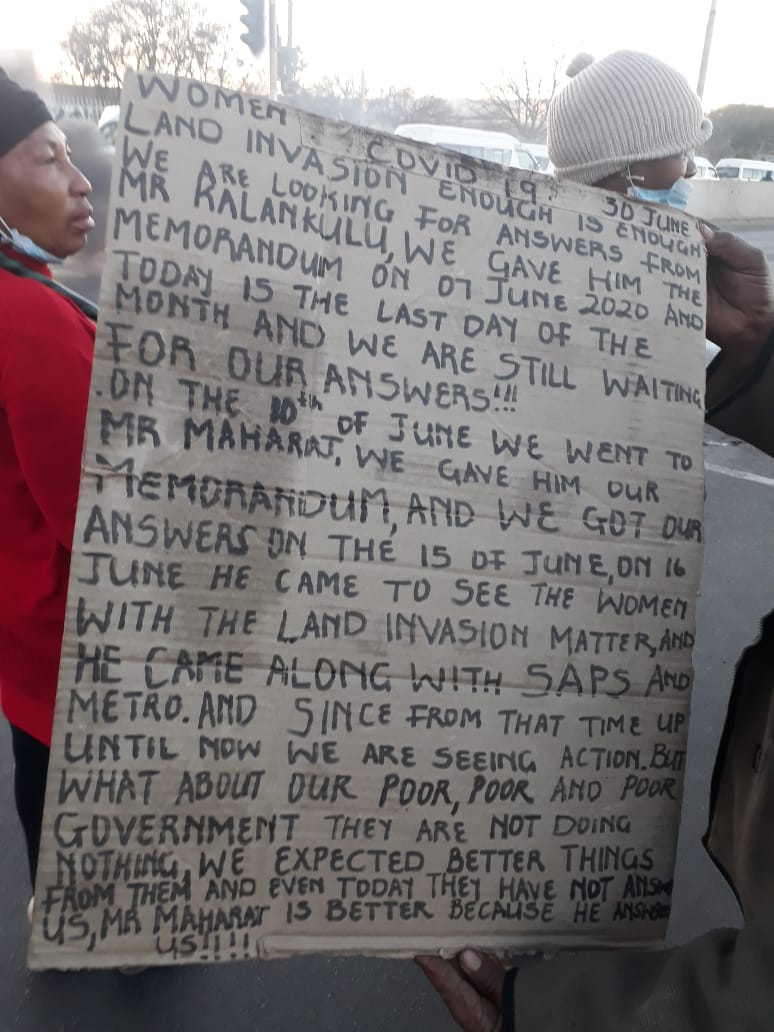 WOMEN COVID 19. 30 JUNE
LAND INVASION ENOUGH IS ENOUGH
WE ARE LOOKING FOR ANSWERS FROM
MR RALANKULU, WE GAVE HIM THE
MEMORANDUM ON 07 JUNE 2020 AND
TODAY IS THE LAST DAY OF THE
MONTH AND WE ARE STILL WAITING
FOR OUR ANSWERS!!!
.ON THE 10th OF JUNE WE WENT TO
MR MAHARAJ, WE GAVE HIM OUR
MEMORANDUM, AND WE GOT OUR
ANSWERS ON THE 15 OF JUNE, ON 16
JUNE HE CAME TO SEE THE WOMEN
WITH THE LAND INVASION MATTER, AND
HE CAME ALONG WITH SAPS AND
METRO. AND SINCE FROM THAT TIME UP
UNTIL NOW WE ARE SEEING ACTION. BUT
WHAT ABOUT OUR POOR, POOR AND POOR
GOVERNMENT THEY ARE NOT DOING
NOTHING, WE EXPECTED BETTER THINGS
FROM THEM AND EVEN TODAY THEY HAVE NOT
US, MR MAHARAJ IS BETTER BECAUSE HE
US!!!!